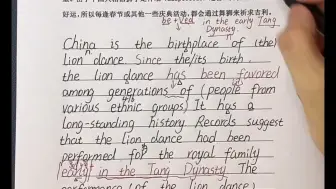 好运,所以每逢春节或其他一些庆典活动,都会通过舞狮来祈求吉利。
in the early Tang
Dynasty.
China is the birthplace of (the)
lion dance. Since the/its birth
the lion dance has been favored
among generations of (people from
various ethnic groups) It has a
long-standing history Records suggest
that the lion dance had been
performed for the royal family
early in the Tang Dynasty The
performance (of the lion dance)